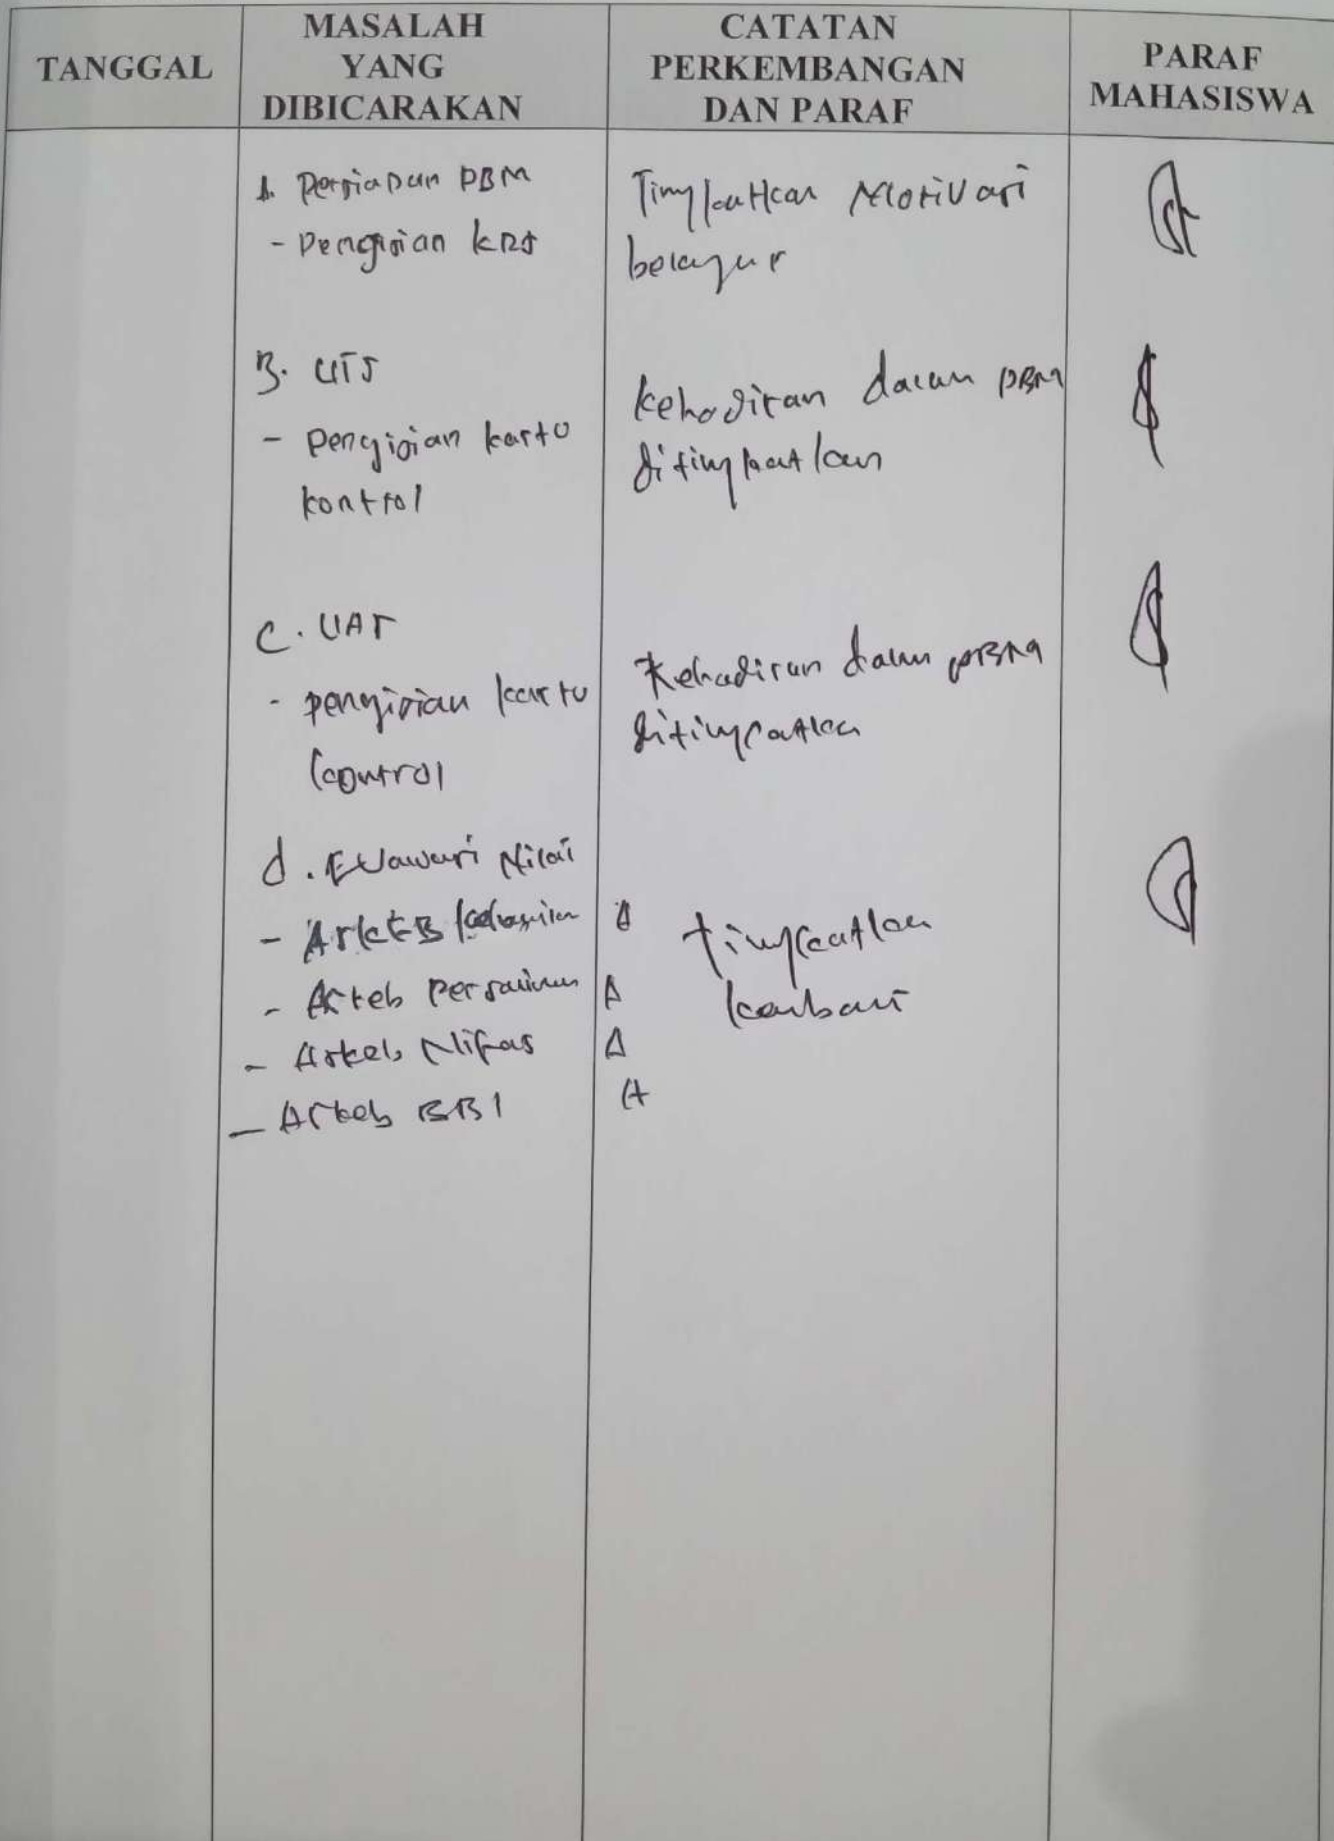 TANGGAL
MASALAH
YANG
DIBICARAKAN
CATATAN
PERKEMBANGAN
DAN PARAF
PARAF
MAHASISWA
A. Persiapan PBM
- Pengisian KRS
Tingkatkan Motivasi
belajar
B. UTS
- Pengisian kartu
kontrol
Kehadiran dalam PBM
ditingkatkan
C. UAS
- pengisian kartu
kontrol
Kehadiran dalam PBM
ditingkatkan
d. Evaluasi Nilai
- Askeb kehamilan A
- Askeb Persalinan A
- Askeb Nifas A
- Askeb BBl A
tingkatkan
kembali